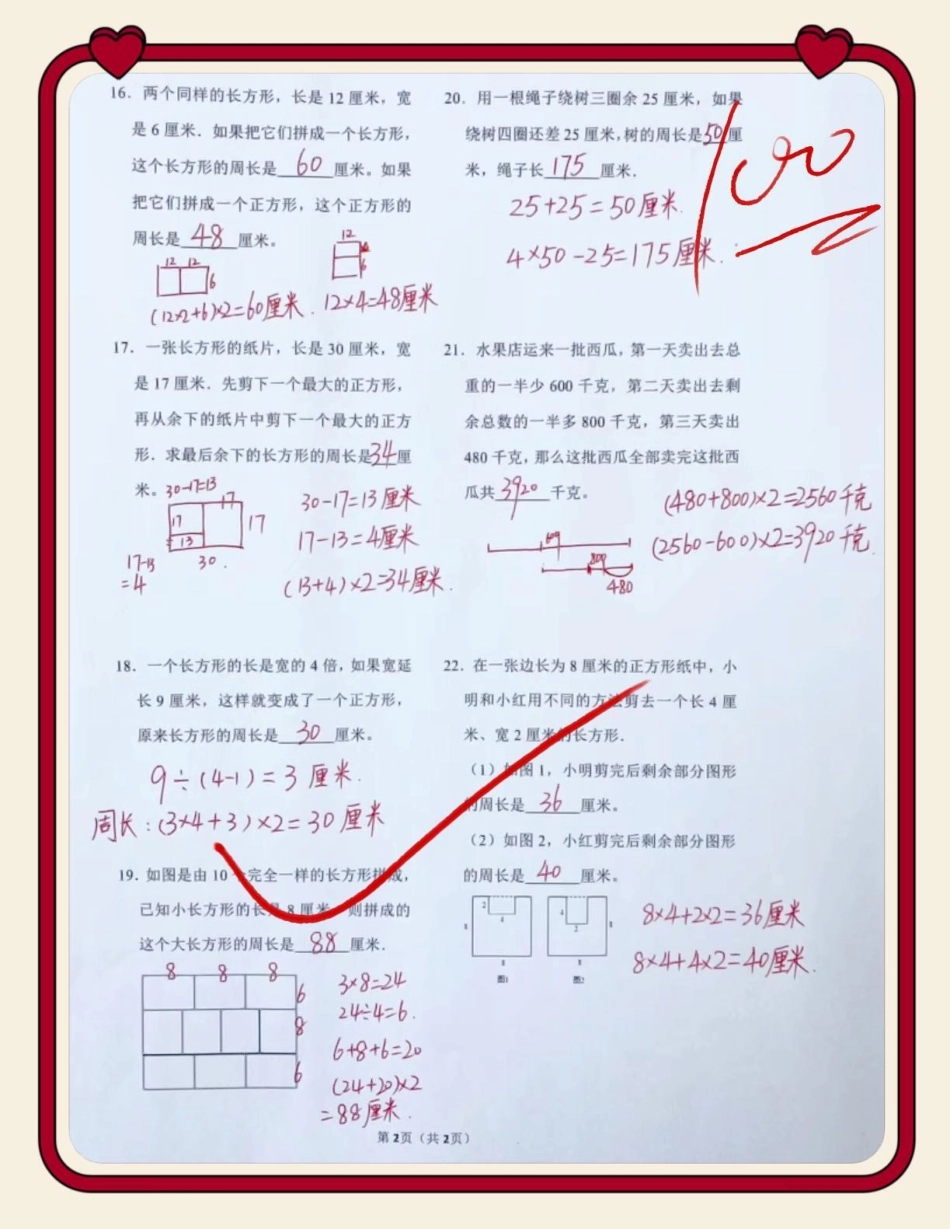 16．两个同样的长方形，长是 12 厘米，宽
是 6 厘米．如果把它们拼成一个长方形，
这个长方形的周长是 60 厘米。如果
把它们拼成一个正方形，这个正方形的
周长是 48 厘米。
12 12
6
12
6
(12×2+6)×2=60厘米．
12×4=48厘米
17．一张长方形的纸片，长是 30 厘米，宽
是 17 厘米．先剪下一个最大的正方形，
再从余下的纸片中剪下一个最大的正方
形．求最后余下的长方形的周长是34厘
米。
30-17=13
17
17
17
13
30．
17-13
=4
30-17=13厘米
17-13=4厘米
(13+4)×2=34厘米．
18．一个长方形的长是宽的 4 倍，如果宽延
长 9 厘米，这样就变成了一个正方形，
原来长方形的周长是 30 厘米。
9÷(4-1)=3 厘米．
周长：(3×4+3)×2=30厘米
19．如图是由 10 个完全一样的长方形拼成，
已知小长方形的长是 8 厘米，则拼成的
这个大长方形的周长是 88 厘米．
8 8 8
6
8
6
3×8=24
24÷4=6．
6+8+6=20
(24+20)×2
=88厘米．
20．用一根绳子绕树三圈余 25 厘米，如果
绕树四圈还差 25 厘米，树的周长是50厘
米，绳子长 175 厘米．
25+25=50厘米．
4×50-25=175厘米．
100
21．水果店运来一批西瓜，第一天卖出去总
重的一半少 600 千克，第二天卖出去剩
余总数的一半多 800 千克，第三天卖出
480 千克，那么这批西瓜全部卖完这批西
瓜共 3920 千克。
(480+800)×2=2560千克
(2560-600)×2=3920千克．
600
800
480
22．在一张边长为 8 厘米的正方形纸中，小
明和小红用不同的方法剪去一个长 4 厘
米、宽 2 厘米的长方形．
（1）如图 1，小明剪完后剩余部分图形
的周长是 36 厘米。
（2）如图 2，小红剪完后剩余部分图形
的周长是 40 厘米。
2
4
8
8
图1
4
2
8
8
图2
8×4+2×2=36厘米
8×4+4×2=40厘米．
第 2页（共 2页）